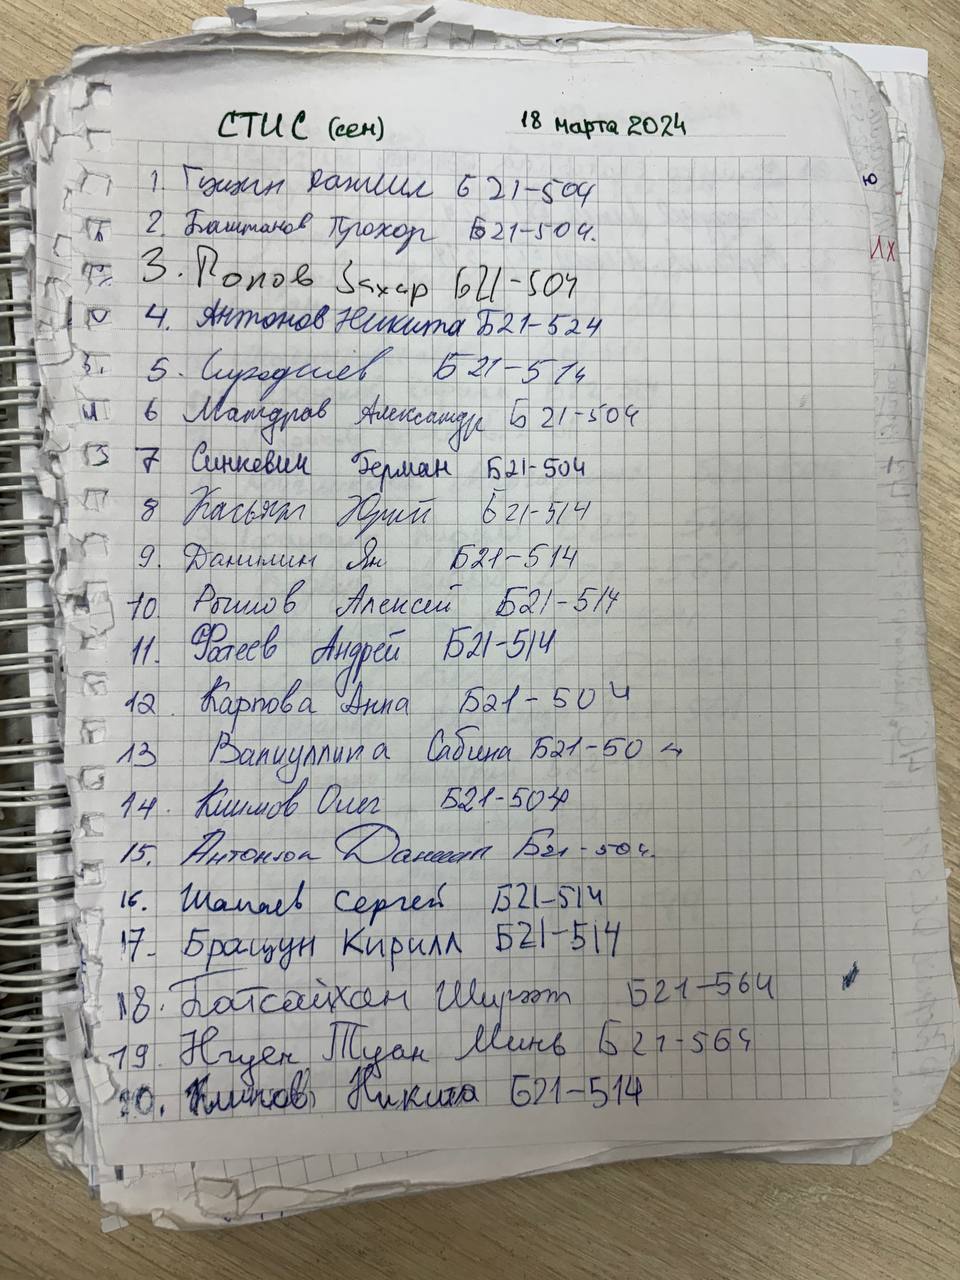 СТИС (сем) 18 марта 2024
1 Б21-504
2. Баштанов Прохор Б21-504.
3. Попов Захар Б21-504
4. Антонов Никита Б21-524
5. Б21-514
6 Александр Б21-504
7 Синкевич Герман Б21-504
8 Касьян Юрий Б21-514
9. Данилин Ян Б21-514
10. Рылов Алексей Б21-514
11. Фатеев Андрей Б21-514
12. Карпова Анна Б21-504
13 Валиуллина Сабина Б21-504
14. Климов Олег Б21-504
15. Б21-504.
16. Шамаев Сергей Б21-514
17. Бращун Кирилл Б21-514
18. Батсайхан Б21-564
19. Нгуен Туан Минь Б21-564
20. Никита Б21-514